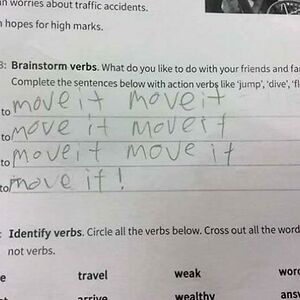 n worries about traffic accidents.
n hopes for high marks.
3: Brainstorm verbs. What do you like to do with your friends and fa
Complete the sentences below with action verbs like 'jump', 'dive', 'fl
to move it move it
to move it move it
to move it move it
to move it!
: Identify verbs. Circle all the verbs below. Cross out all the word
not verbs.
e travel weak word
arrive wealthy answ